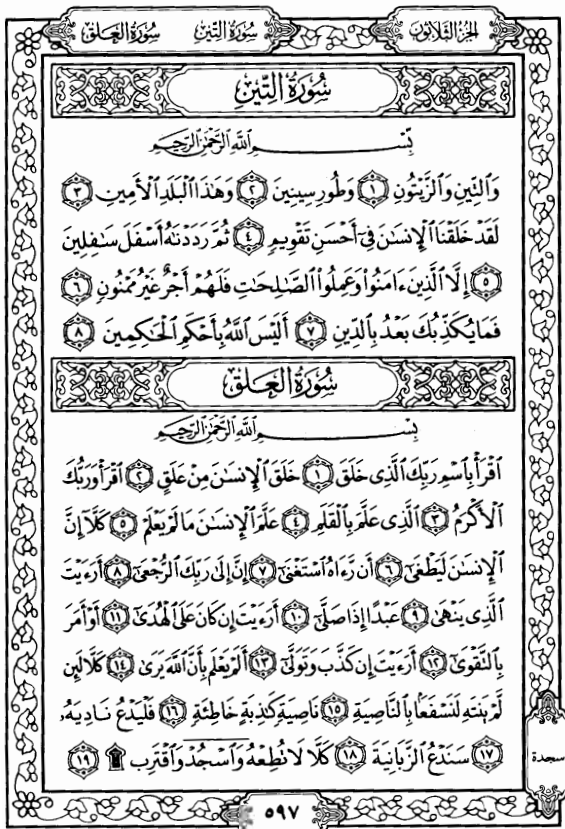 الجزء الثلاثون
سورة التين
سورة العلق
سُورَةُ التِّينِ
بِسْمِ اللَّهِ الرَّحْمَٰنِ الرَّحِيمِ
وَالتِّينِ وَالزَّيْتُونِ ١ وَطُورِ سِينِينَ ٢ وَهَٰذَا الْبَلَدِ الْأَمِينِ ٣
لَقَدْ خَلَقْنَا الْإِنسَٰنَ فِىٓ أَحْسَنِ تَقْوِيمٍ ٤ ثُمَّ رَدَدْنَٰهُ أَسْفَلَ سَٰفِلِينَ
٥ إِلَّا الَّذِينَ ءَامَنُوا وَعَمِلُوا الصَّٰلِحَٰتِ فَلَهُمْ أَجْرٌ غَيْرُ مَمْنُونٍ ٦
فَمَا يُكَذِّبُكَ بَعْدُ بِالدِّينِ ٧ أَلَيْسَ اللَّهُ بِأَحْكَمِ الْحَٰكِمِينَ ٨
سُورَةُ العَلَقِ
بِسْمِ اللَّهِ الرَّحْمَٰنِ الرَّحِيمِ
اقْرَأْ بِاسْمِ رَبِّكَ الَّذِى خَلَقَ ١ خَلَقَ الْإِنسَٰنَ مِنْ عَلَقٍ ٢ اقْرَأْ وَرَبُّكَ
الْأَكْرَمُ ٣ الَّذِى عَلَّمَ بِالْقَلَمِ ٤ عَلَّمَ الْإِنسَٰنَ مَا لَمْ يَعْلَمْ ٥ كَلَّآ إِنَّ
الْإِنسَٰنَ لَيَطْغَىٰٓ ٦ أَن رَّءَاهُ اسْتَغْنَىٰٓ ٧ إِنَّ إِلَىٰ رَبِّكَ الرُّجْعَىٰٓ ٨ أَرَءَيْتَ
الَّذِى يَنْهَىٰ ٩ عَبْدًا إِذَا صَلَّىٰٓ ١٠ أَرَءَيْتَ إِن كَانَ عَلَى الْهُدَىٰٓ ١١ أَوْ أَمَرَ
بِالتَّقْوَىٰٓ ١٢ أَرَءَيْتَ إِن كَذَّبَ وَتَوَلَّىٰٓ ١٣ أَلَمْ يَعْلَم بِأَنَّ اللَّهَ يَرَىٰ ١٤ كَلَّا لَئِن
لَّمْ يَنتَهِ لَنَسْفَعًۢا بِالنَّاصِيَةِ ١٥ نَاصِيَةٍ كَٰذِبَةٍ خَاطِئَةٍ ١٦ فَلْيَدْعُ نَادِيَهُۥ
١٧ سَنَدْعُ الزَّبَانِيَةَ ١٨ كَلَّا لَا تُطِعْهُ وَاسْجُدْ وَاقْتَرِب ۩ ١٩
سجدة
٥٩٧